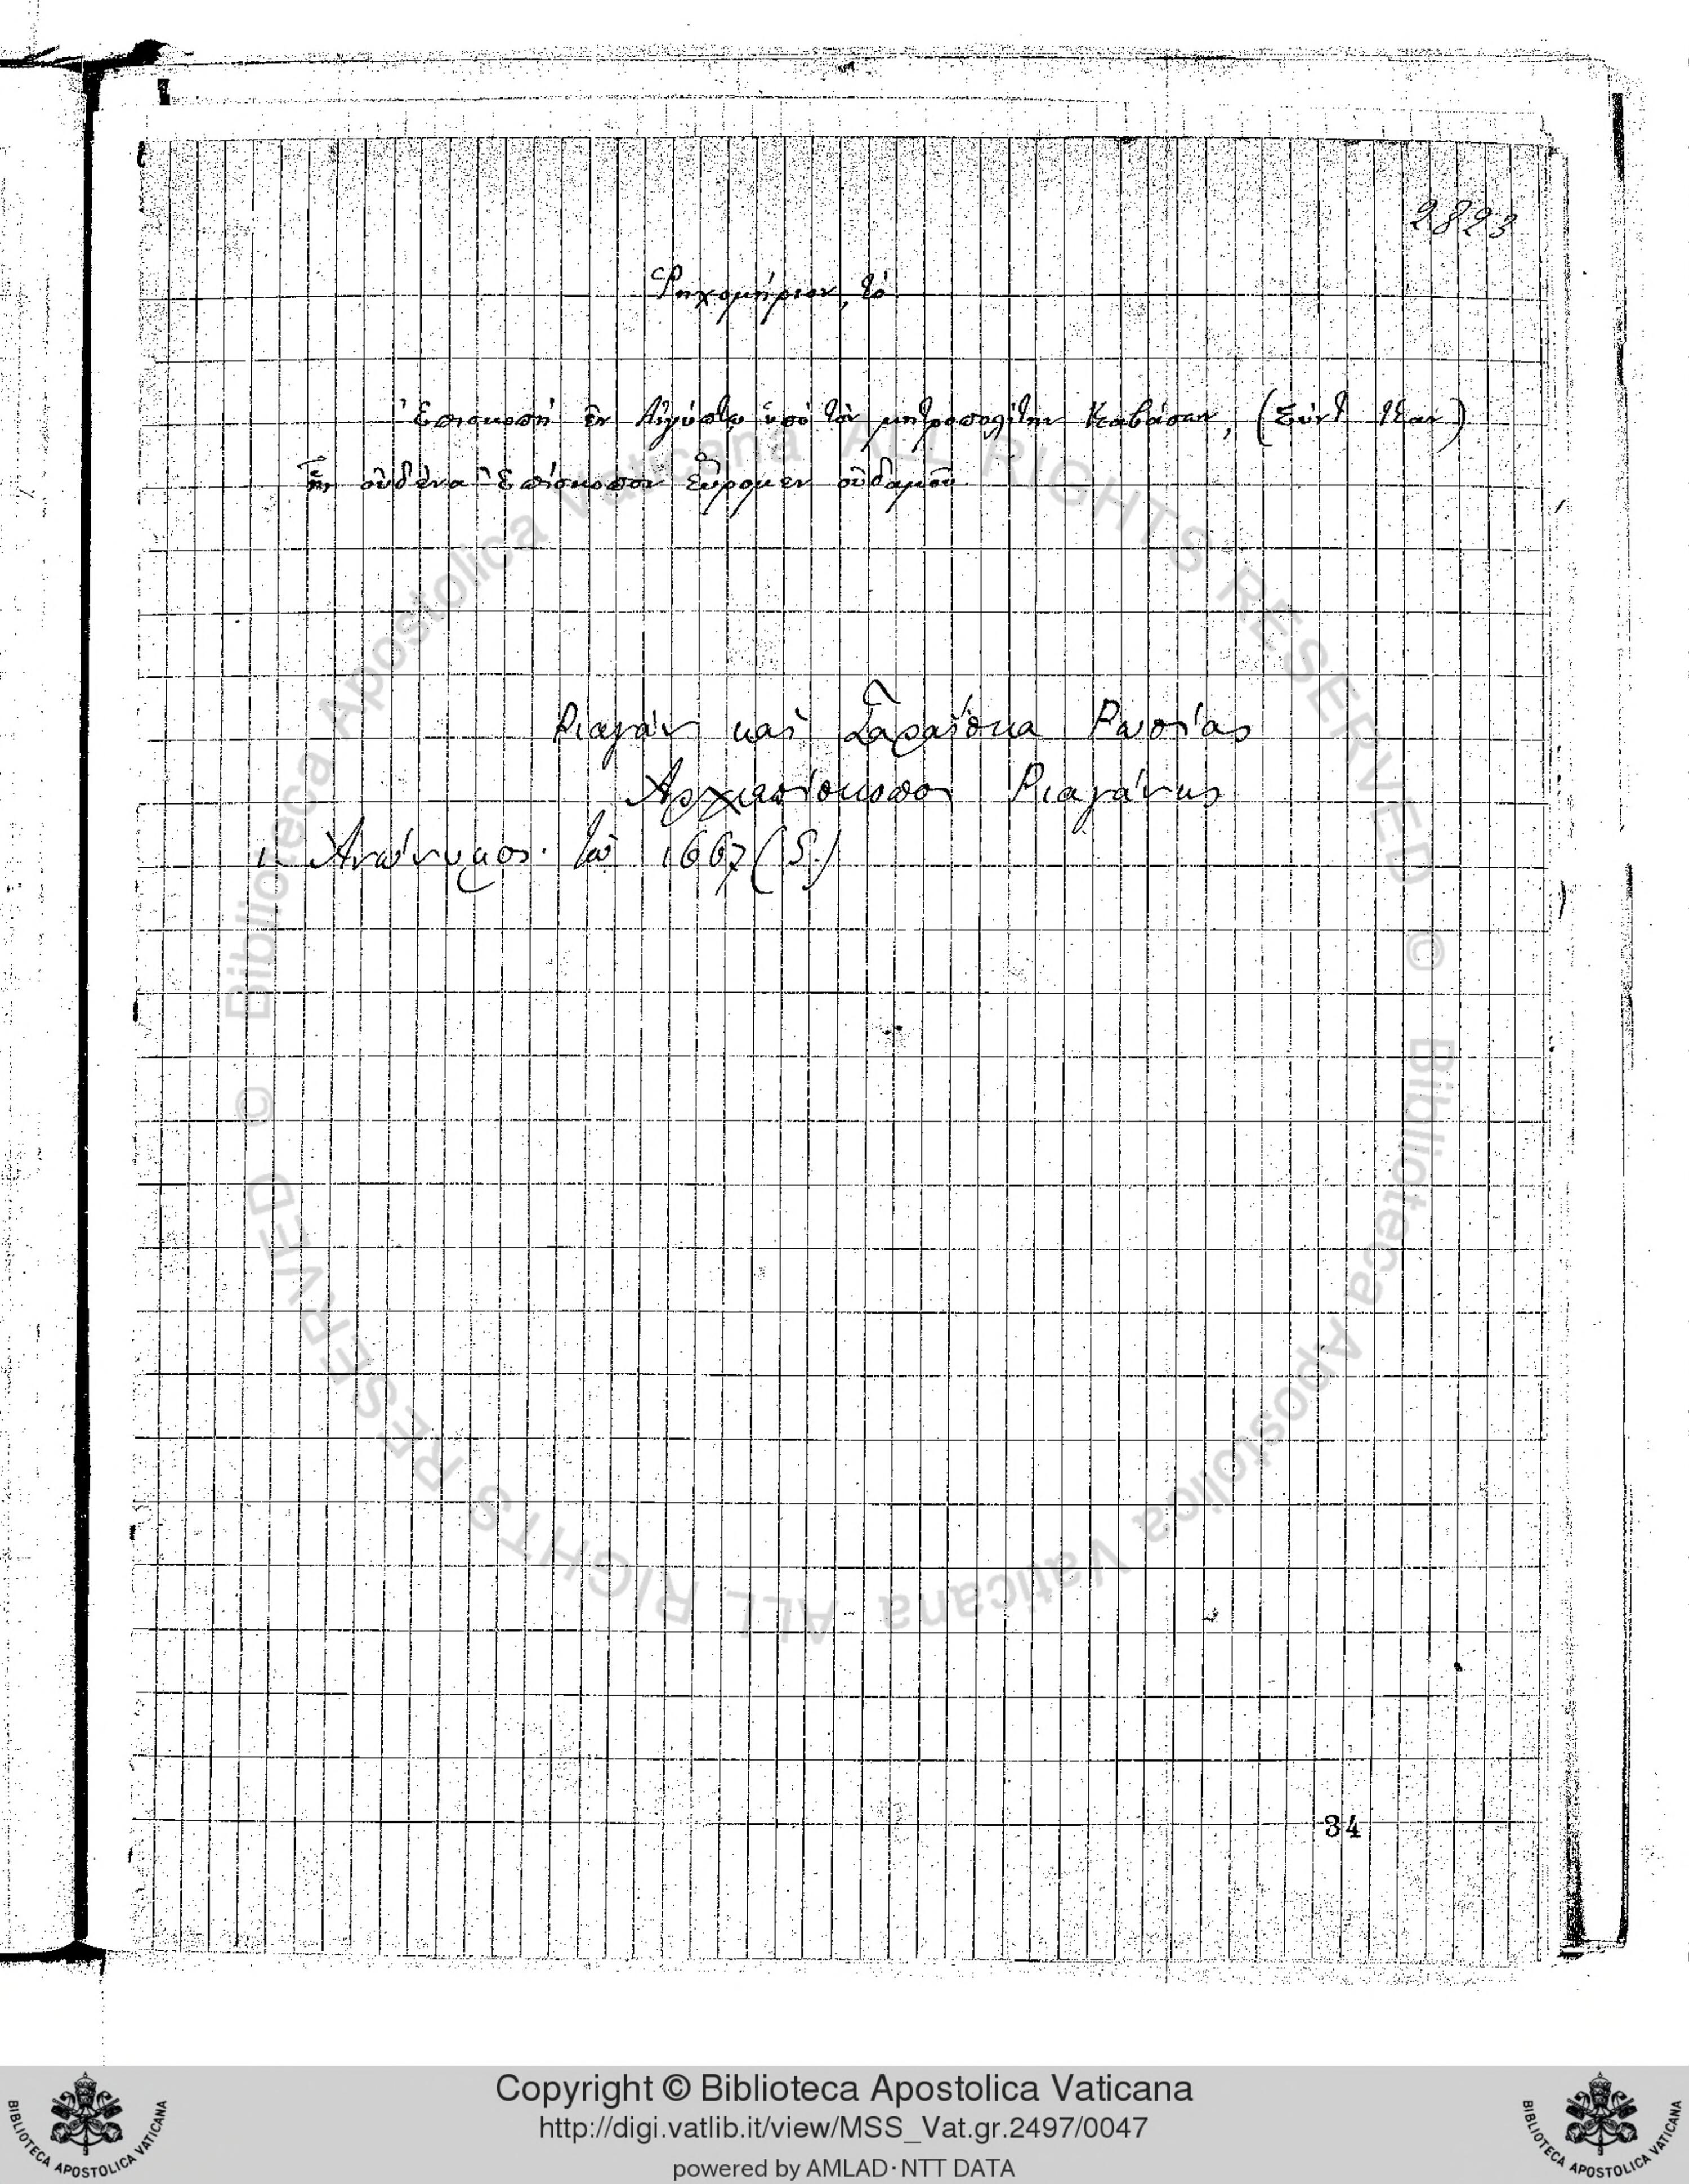 2823
Ῥηχομήριον, τό
Ἐπισκοπή ἐν Αἰγύπτῳ ὑπό τόν μητροπολίτην Καβάσων, (Σύντ
ἧς οὐδένα Ἐπίσκοπον εὕρομεν οὐδαμοῦ.
Ριαζάν καί Σαραΐσκα Ρωσίας
Ἀρχιεπίσκοποι Ριαζάνης
1. Ἀνώνυμος. τῷ 1667 (S.)
34
© Biblioteca Apostolica Vaticana ALL RIGHTS RESERVED
© Biblioteca Apostolica Vaticana ALL RIGHTS RESERVED
Copyright © Biblioteca Apostolica Vaticana
http://digi.vatlib.it/view/MSS_Vat.gr.2497/0047
powered by AMLAD·NTT DATA
BIBLIOTECA APOSTOLICA VATICANA
BIBLIOTECA APOSTOLICA VATICANA